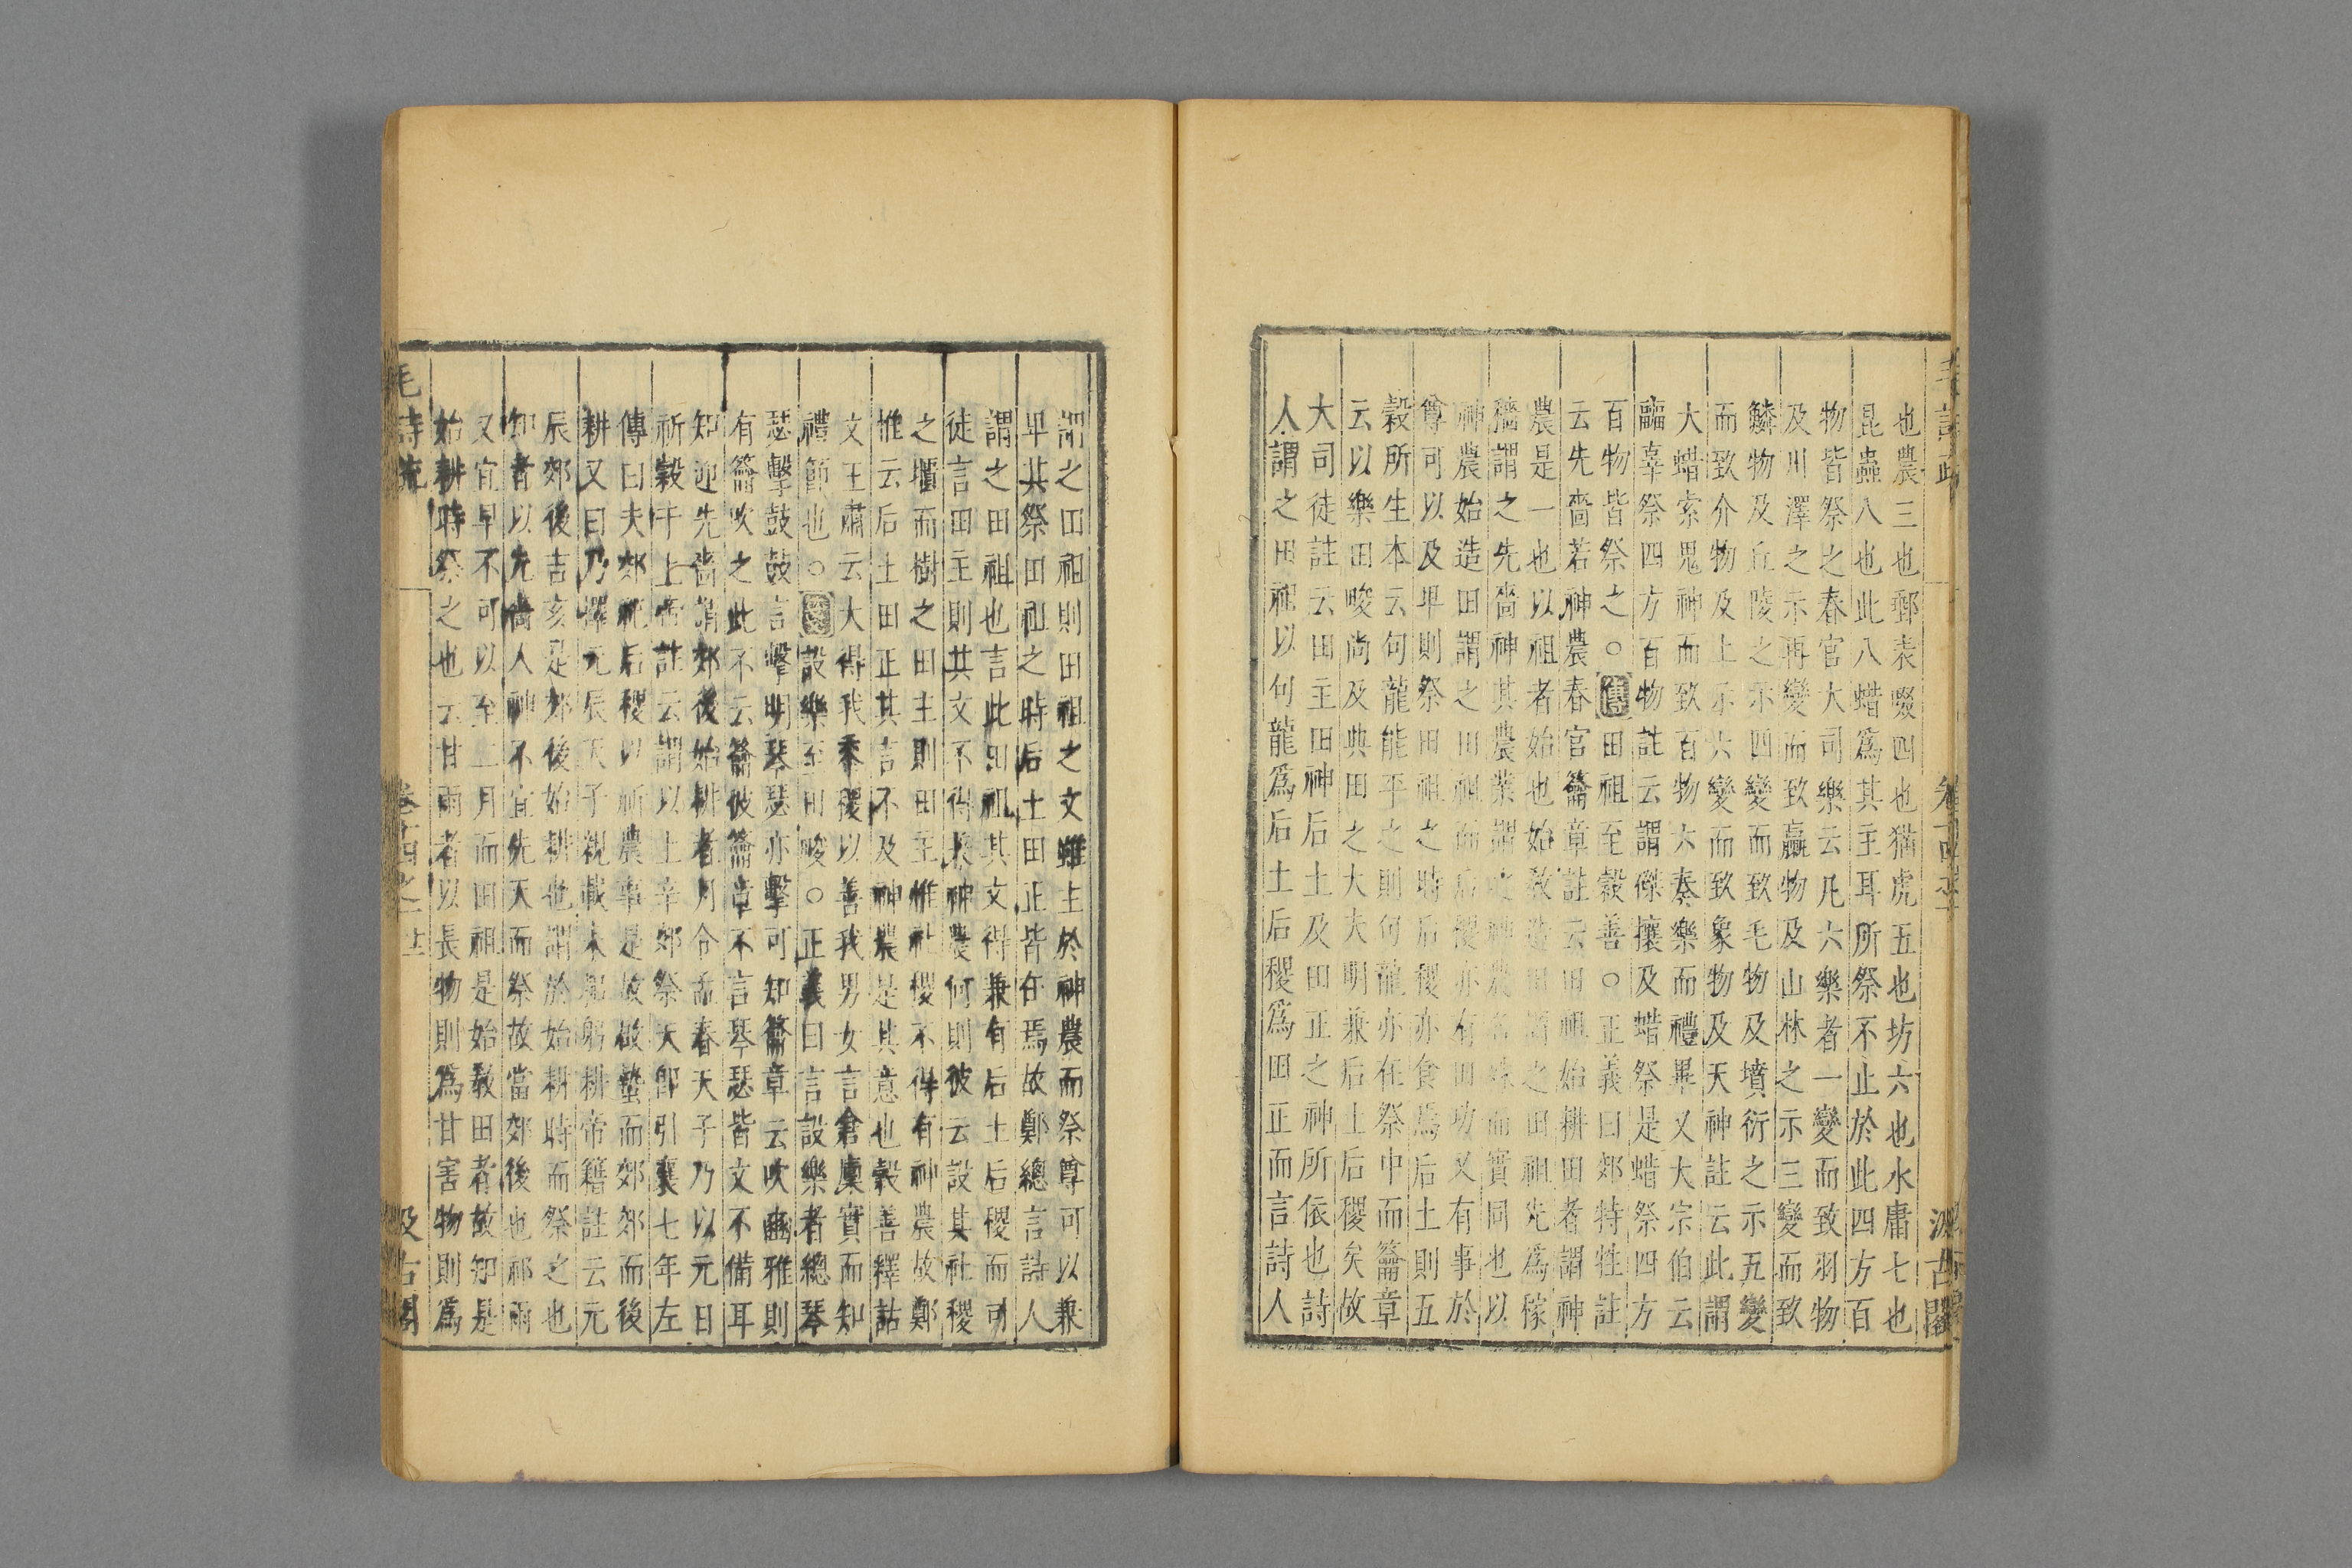 也農三也郵表畷四也猫虎五也坊六也水庸七也
昆蟲八也此八蜡爲其主耳所祭不止於此四方百
物皆祭之春官大司樂云凡六樂者一變而致羽物
及川澤之示再變而致臝物及山林之示三變而致
鱗物及丘陵之示四變而致毛物及墳衍之示五變
而致介物及土示六變而致象物及天神註云此謂
大蜡索鬼神而致百物六奏樂而禮畢又大宗伯云
疈辜祭四方百物註云謂磔攘及蜡祭是蜡祭四方
百物皆祭之○傳田祖至穀善○正義曰郊特牲註
云先嗇若神農春官籥章註云田祖始耕田者謂神
農是一也以祖者始也始教造田謂之田祖先爲稼
穡謂之先嗇神其農業謂之神農名殊而實同也以
神農始造田謂之田祖而后稷亦有田功又有事於
尊可以及卑則祭田祖之時后稷亦食焉后土則五
穀所生本云句龍能平之則句龍亦在祭中而籥章
云以樂田畯尚及典田之大夫明兼后土后稷矣故
大司徒註云田主田神后土及田正之神所依也詩
人謂之田祖以句龍爲后土后稷爲田正而言詩人
謂之田祖則田祖之文雖主於神農而祭尊可以兼
卑其祭田祖之時后土田正皆在焉故鄭總言詩人
謂之田祖也言此田祖其文得兼有后土后稷而司
徒言田主則其文不得兼神農何則彼云設其社稷
之壝而樹之田主則田主惟社稷不得有神農故鄭
惟云后土田正其言不及神農是其意也穀善釋詁
文王肅云大得我黍稷以善我男女言倉廩實而知
禮節也○箋設樂至田畯○正義曰言設樂者總琴
瑟擊鼓鼓言擊明琴瑟亦擊可知籥章云吹豳雅則
有籥吹之此不云籥彼籥章不言琴瑟皆文不備耳
知迎先嗇謂郊後始耕者月令孟春天子乃以元日
祈穀于上帝註云謂以上辛郊祭天即引襄七年左
傳曰夫郊祀后稷以祈農事是故啟蟄而郊郊而後
耕又曰乃擇元辰天子親載耒耜躬耕帝籍註云元
辰郊後吉亥是郊後始耕也謂於始耕時而祭之也
知者以先嗇人神不宜先天而祭故當郊後也祁雨
又宜早不可以至二月而田祖是始教田者故知是
始耕時祭之也云甘雨者以長物則爲甘害物則爲
毛詩疏
卷十四之一
汲古閣